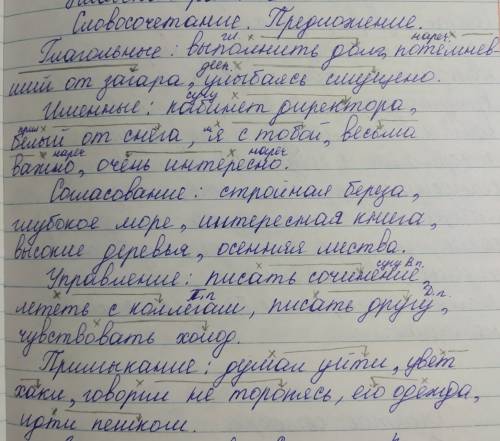 Словосочетание. Предложение.
гл. нареч
Глагольные: выполнить долг, потемнев-
дееп.
ший от загара, улыбаясь смущено.
сущ
Именные: кабинет директора,
прил
белый от снега, мы с тобой, весьма
нареч нареч
важно, очень интересно.
Согласование: стройная береза,
глубокое море, интересная книга,
высокие деревья, осенняя листва.
сущ В.п.
Управление: писать сочинение,
Т.п Д.п.
лететь с коллегам, писать другу,
чувствовать холод.
Примыкание: думал уйти, цвет
хаки, говорим не торопясь, его одежда,
идти пешком.